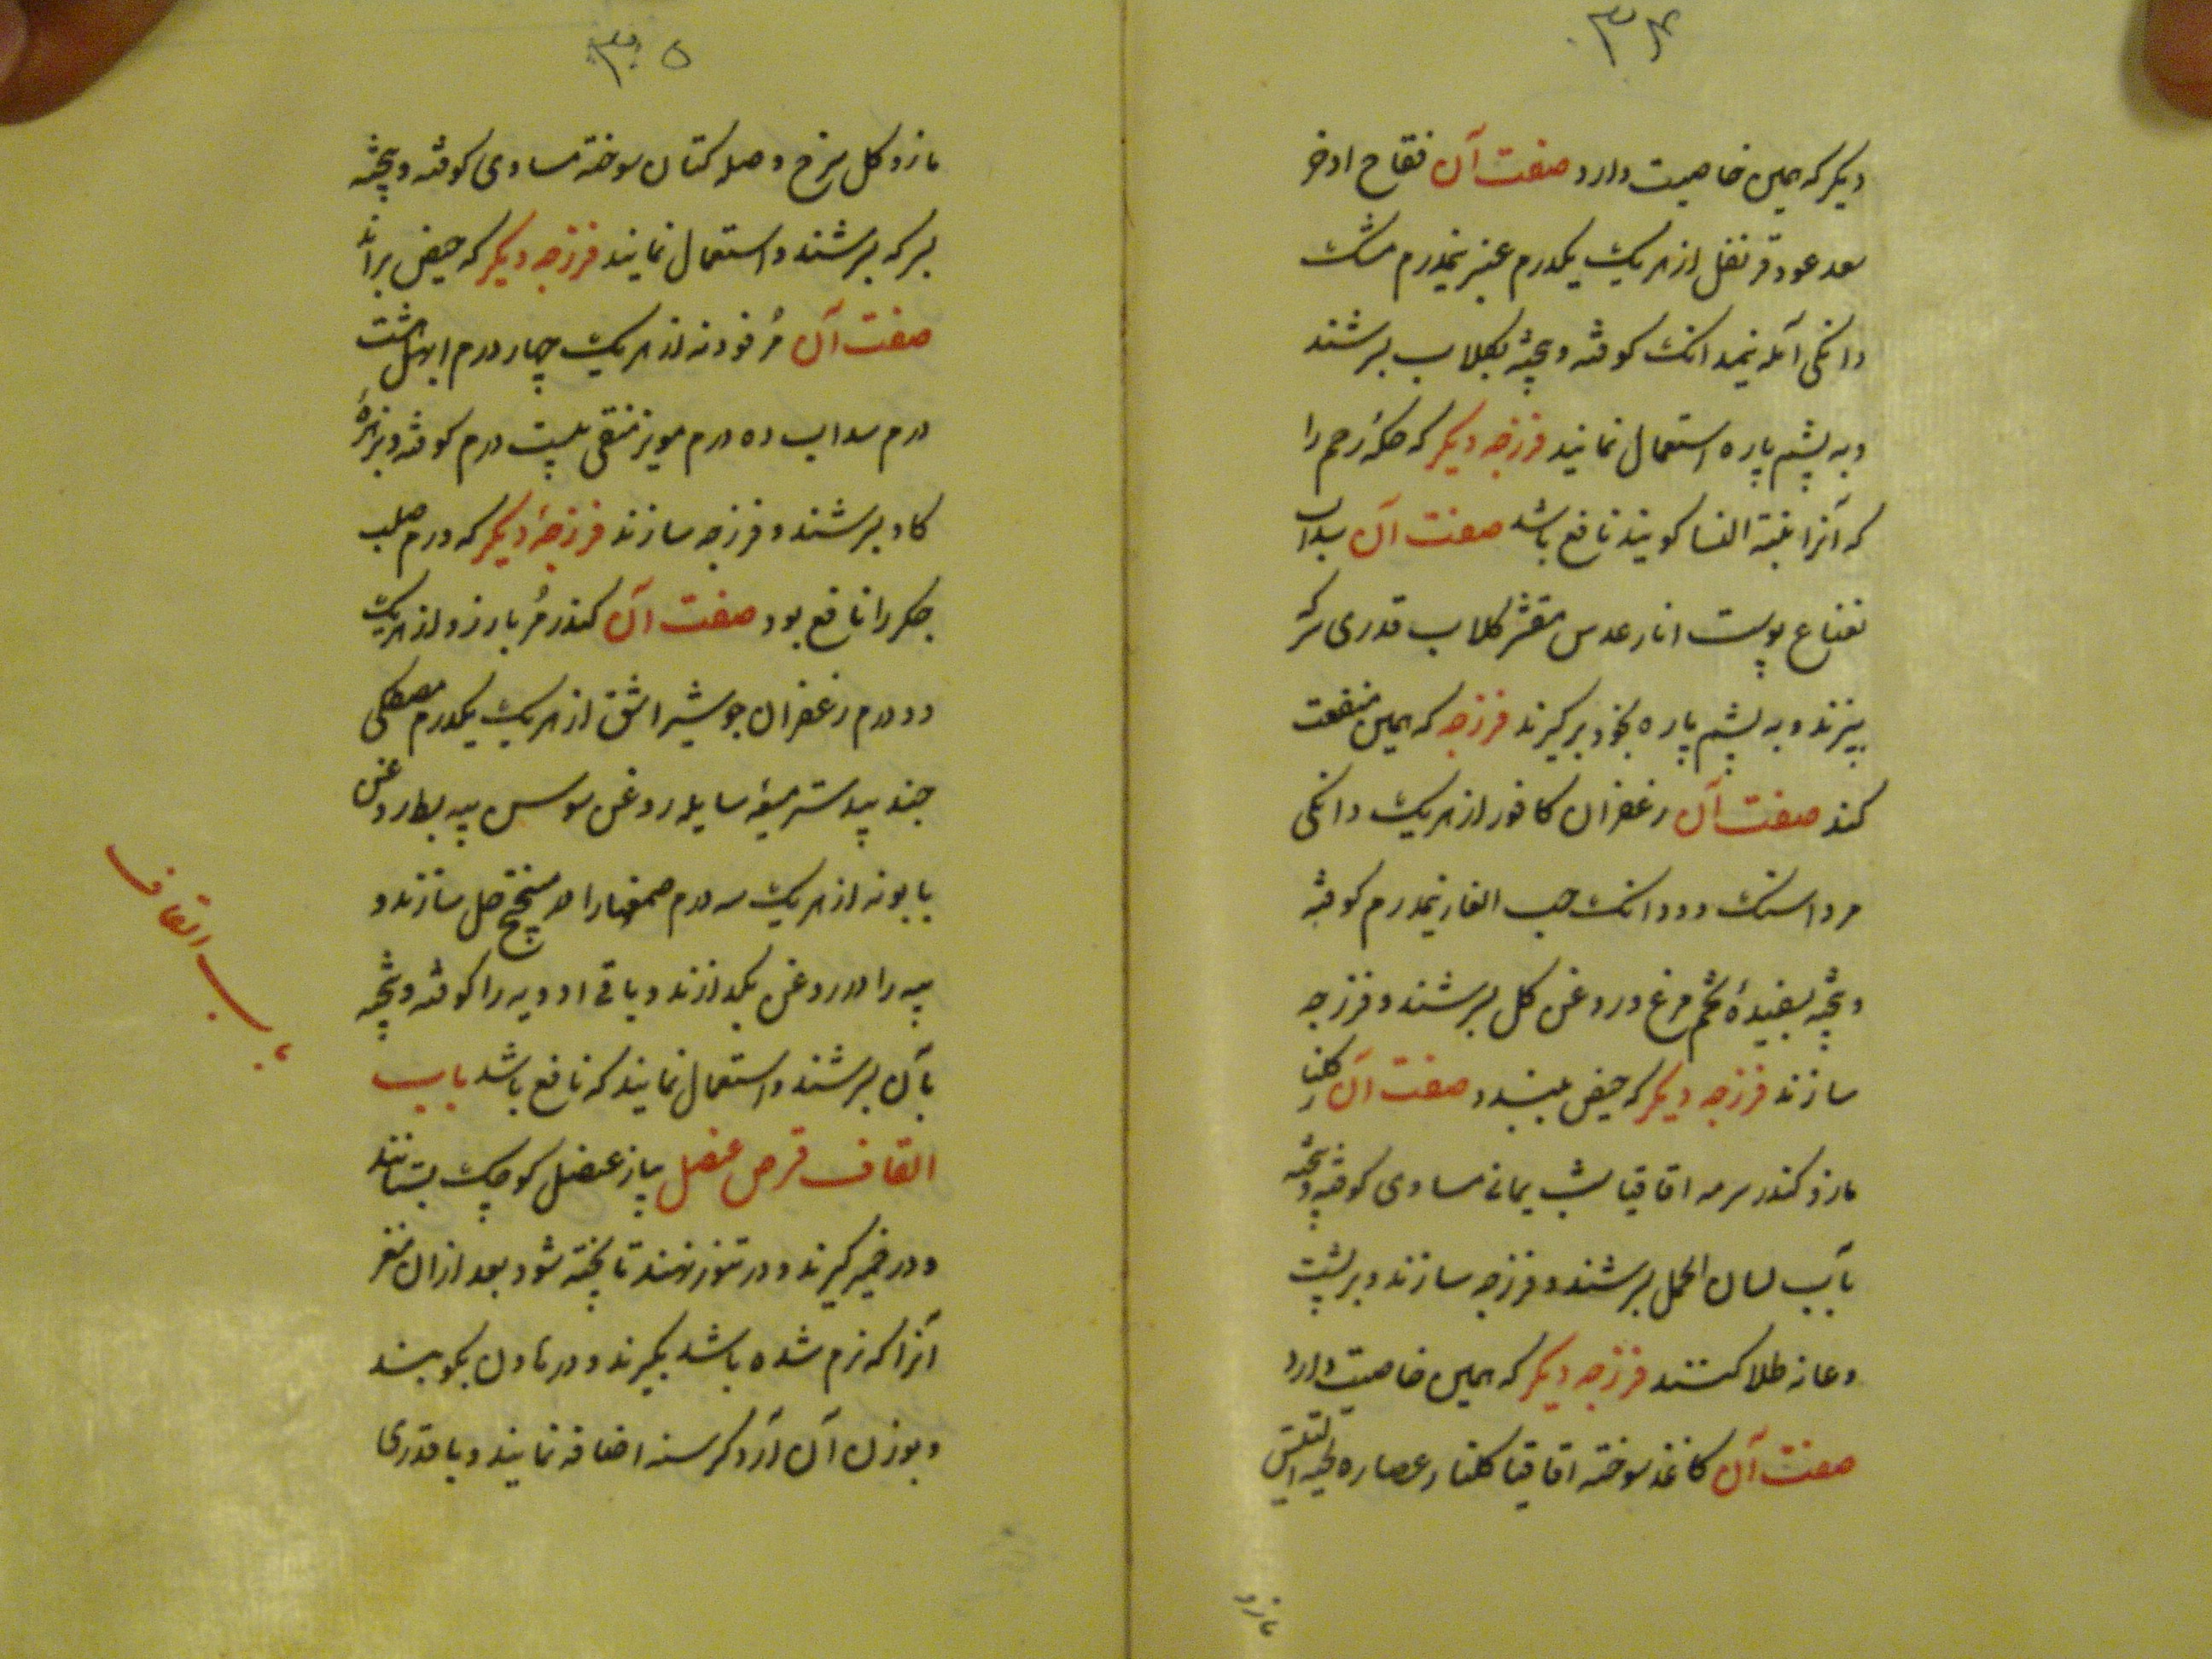 ۳۰۴
دیکر که همین خاصیت دارد صفت آن فقاح اذخر
سعد عود قرنفل از هریک یکدرم عنبر نیمدرم مشک
دانکی آمله نیمدانک کوفته و پخته بکلاب بسرشند
و به پشم پاره استعمال نمایند فرزجه دیکر که حکۀ رحم را
که آنرا النسا کویند نافع باشد صفت آن سداب
نعناع پوست انار عدس مقشر کلاب قدری سرکه
بپزند و به پشم پاره بخود برکیرند فرزجه که همین منفعت
کند صفت آن زعفران کافور از هریک دانکی
مرداسنک دودانک حب الغار نیمدرم کوفته
و پخته بسفیدۀ تخم مرغ و روغن کل بسرشند و فرزجه
سازند فرزجه دیکر که حیض ببندد صفت آن کلنار
مازو کندر سرمه اقاقیا شب یمانی مساوی کوفته و پخته
بآب لسان الحمل بسرشند و فرزجه سازند و بر پشت
و عانه طلا کنند فرزجه دیکر که همین خاصیت دارد
صفت آن کاغذ سوخته اقاقیا کلنار عصاره لحیة التیس
مازو
۳۰۵
مازو کل سرخ و صله کتان سوخته مساوی کوفته و پخته
بسرکه بسرشند و استعمال نمایند فرزجه دیکر که حیض براند
صفت آن مُر فودنه از هریک چهار درم ابهل هشت
درم سداب ده درم مویز منقی بیست درم کوفته و بزهرۀ
کاو بسرشند و فرزجه سازند فرزجۀ دیکر که ورم صلب
جکر را نافع بود صفت آن کندر مُر بارزد از هریک
دو درم زعفران جوشیر اشق از هریک یکدرم مصطکی
جند بیدستر میعۀ سایله روغن سوسن پیه بط روغن
بابونه از هریک سه درم صمغها را در میپختج حل سازند و
پیه را در روغن بکدازند و باقی ادویه را کوفته و پخته
بآن بسرشند و استعمال نمایند که نافع باشد باب
القاف قرص عنصل پیاز عنصل کوچک بستانند
و در خمیر کیرند و در تنور نهند تا پخته شود بعد ازان مغز
آنرا که نرم شده باشد بکیرند و در هاون بکوبند
و بوزن آن آرد کرسنه اضافه نمایند و با قدری
باب القاف